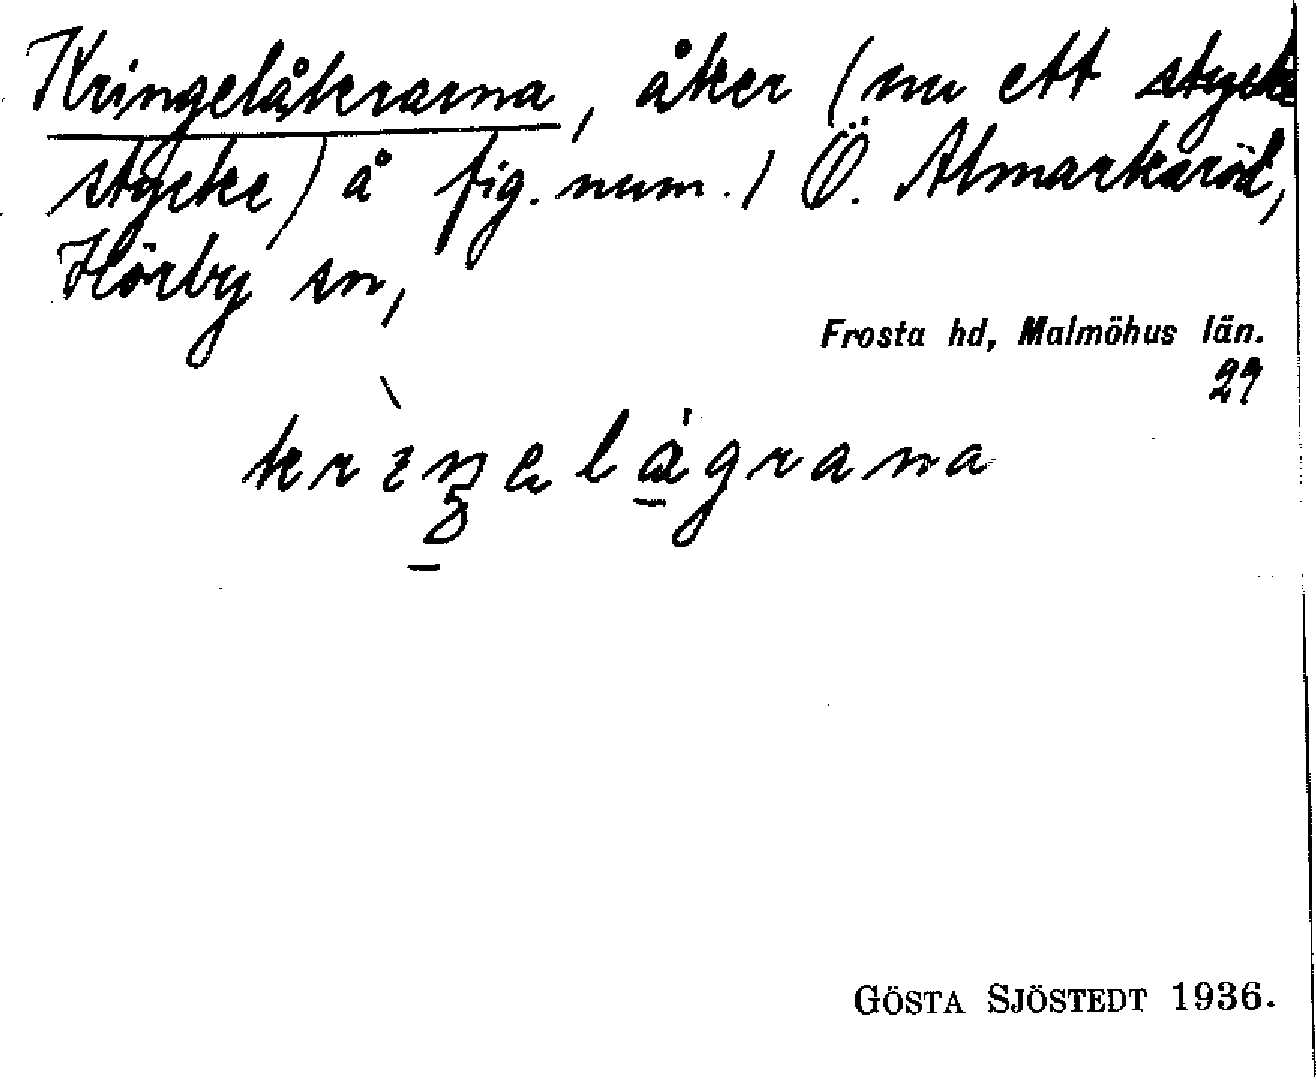 Kringelåkrarna, åker (nu ett stycke
stycke) å fig. num. 1 Ö. Almarkaröd,
Hörby sn,
Frosta hd, Malmöhus län.
29
GÖSTA SJÖSTEDT 1936.